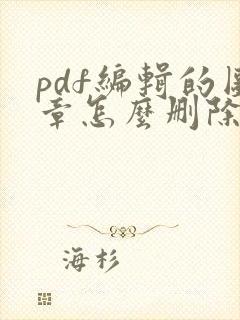 pdf編輯的圖
章怎麼刪除
海杉